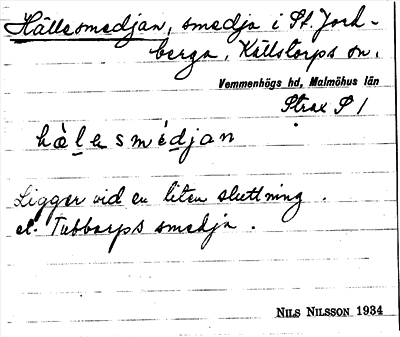 Hällesmedjan, smedja i St. Jord-
berga, Källstorps sn,
Vemmenhögs hd, Malmöhus län
Strax S 1
hàlasmédjan
Ligger vid en liten sluttning.
el. Tubbarps smedja.
NILS NILSSON 1934